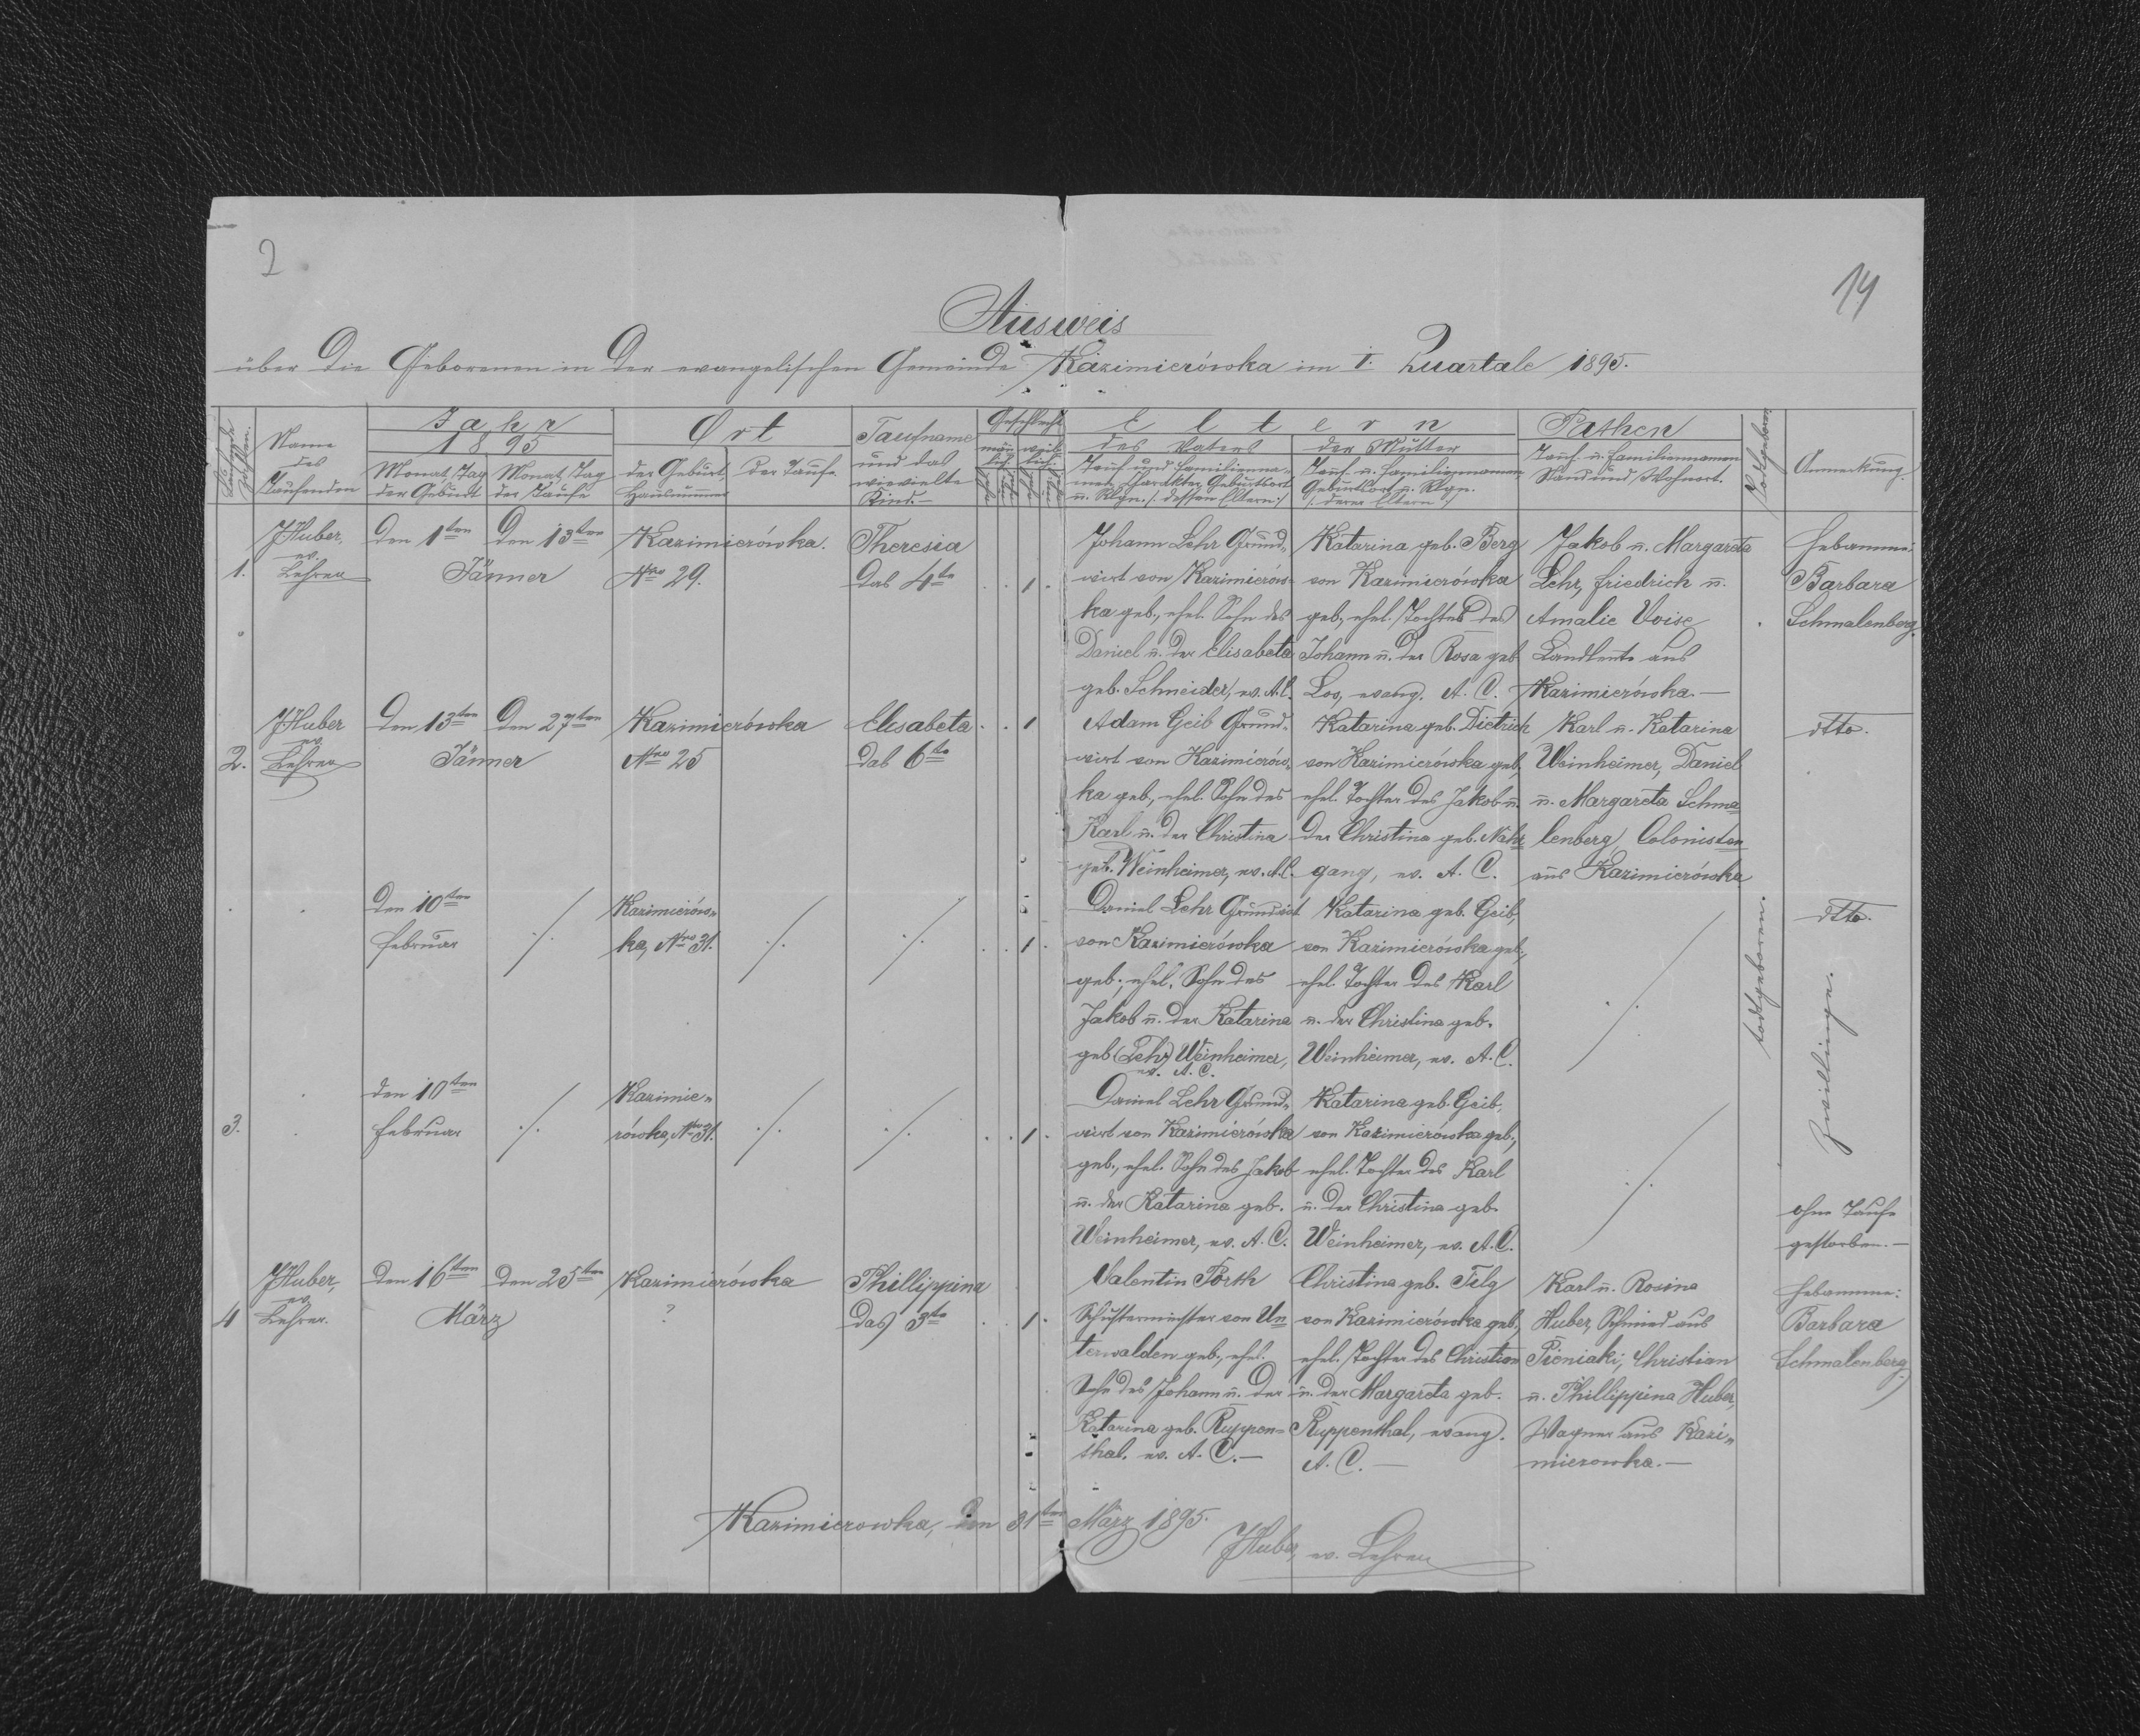 2
14
Ausweis
über die Geborenen in der evangelischen Gemeinde Kazimierówka im I. Quartale 1895.
Name
des
Taufenden
Jahr
1895
Monat, Tag
der Geburt
Monat, Tag
der Taufe
Ort
der Geburt,
Hausnummer
der Taufe.
Taufname
und das
wievielte
Kind.—
Geschlecht
männ-
lich
weib-
lich
Eltern
des Vaters
Tauf- und Familienna-
men, Charakter, Geburtsort
u. Rlgn. /: dessen Eltern :/
der Mutter
Tauf- u. Familiennamen,
Geburtsort u. Rlgn.
/: deren Eltern :/
Pathen
Tauf- u. Familiennamen
Stand und Wohnort.
Todtgeboren
Anmerkung.
1.
JHuber,
ev.
Lehrer
Den 1ten
Den 13ten
Jänner
Kazimierówka.
Nro 29.
Theresia
Das 4te
1
Johann Lehr Grund-
wirt von Kazimierów-
ka geb., ehel. Sohn des
Daniel u. der Elisabeta
geb. Schneider, ev. A. C.
Katarina geb. Berg
von Kazimierówka
geb., ehel. Tochter des
Johann u. der Rosa geb
Los, evang. A. C.
Jakob u. Margareta
Lehr, Friedrich u.
Amalie Voise
Landleute aus
Kazimierówka.—
Hebamme:
Barbara
Schmalenberg.
2.
JHuber
ev.
Lehrer
Den 13ten
Den 27ten
Jänner
Kazimierówka
Nro 25
Elisabeta
Das 6te
1
Adam Geib Grund-
wirt von Kazimierów-
ka geb., ehel. Sohn des
Karl u. der Christina
geb. Weinheimer, ev. A. C.
Katarina geb. Dietrich
von Kazimierówka geb.,
ehel. Tochter des Jakob u.
der Christina geb. Nahr
gang, ev. A. C.
Karl u. Katarina
Weinheimer, Daniel
u. Margareta Schma
lenberg, Colonisten
aus Kazimierówka
dtto.
Den 10ten
Februar
./.
Kazimierów-
ka, Nro 31.
./.
./.
1
Daniel Lehr Grundwirt
von Kazimierówka
geb., ehel. Sohn des
Jakob u. der Katarina
geb (Lehr) Weinheimer,
ev. A. C.
Katarina geb. Geib,
von Kazimierówka geb.,
ehel. Tochter des Karl
u. der Christina geb.
Weinheimer, ev. A. C.
./.
todtgeboren.
dtto.
Zwillinge.
3.
den 10ten
Februar
./.
Kazimie-
rówka, Nro 31.
./.
./.
1
Daniel Lehr Grund-
wirt von Kazimierówka
geb., ehel. Sohn des Jakob
u. der Katarina geb.
Weinheimer, ev. A. C.
Katarina geb. Geib,
von Kazimierówka geb.,
ehel. Tochter des Karl
u. der Christina geb.
Weinheimer, ev. A. C.
./.
ohne Taufe
gestorben.—
4
JHuber,
ev.
Lehrer.
Den 16ten
Den 25ten
März
Kazimierówka
?
Phillippina
Das 3te
1
Valentin Porth
Schustermeister von Un
terwalden geb., ehel.
Sohn des Johann u. der
Katarina geb. Ruppen-
thal. ev. A. C.—
Christina geb. Filg
von Kazimierówka geb.,
ehel. Tochter des Christian
u. der Margareta geb.
Ruppenthal, evang.
A. C.—
Karl u. Rosina
Huber, Schmied aus
Pieniaki, Christian
u. Phillippina Huber,
Wagner aus Kazi-
mierowka.—
Hebamme:
Barbara
Schmalenberg.
Kazimierowka, den 31ten März 1895.
JHuber, ev. Lehrer